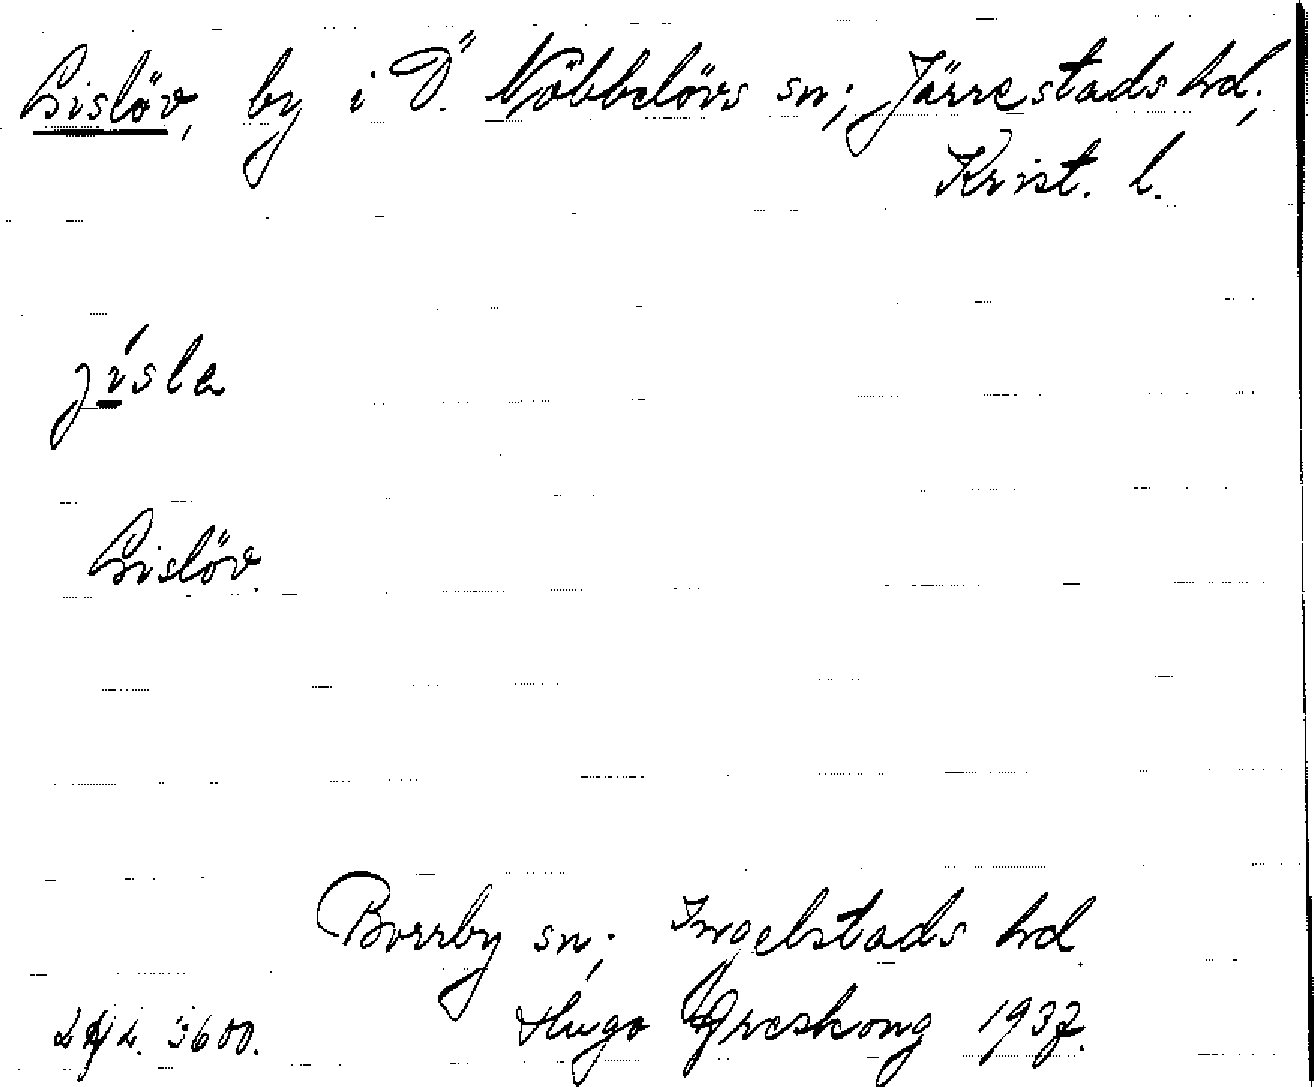 Gislöv, by i Ö. Nöbbelövs sn; Järrestads hd;
Krist. l.
jísla
Gislöv.
Borrby sn; Ingelstads hd
Hugo Areskoug 1937.